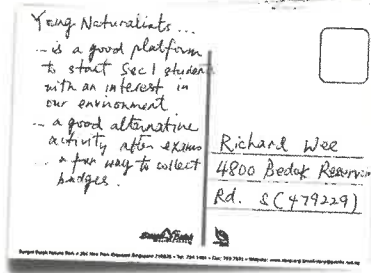 Young Naturalists ...
... is a good platform
to start Sec 1 student
with an interest in
our environment
... a good alternative
activity after exams
... a fun way to collect
badges.
Richard Wee
4800 Bedok Reservoir
Rd. S(479229)